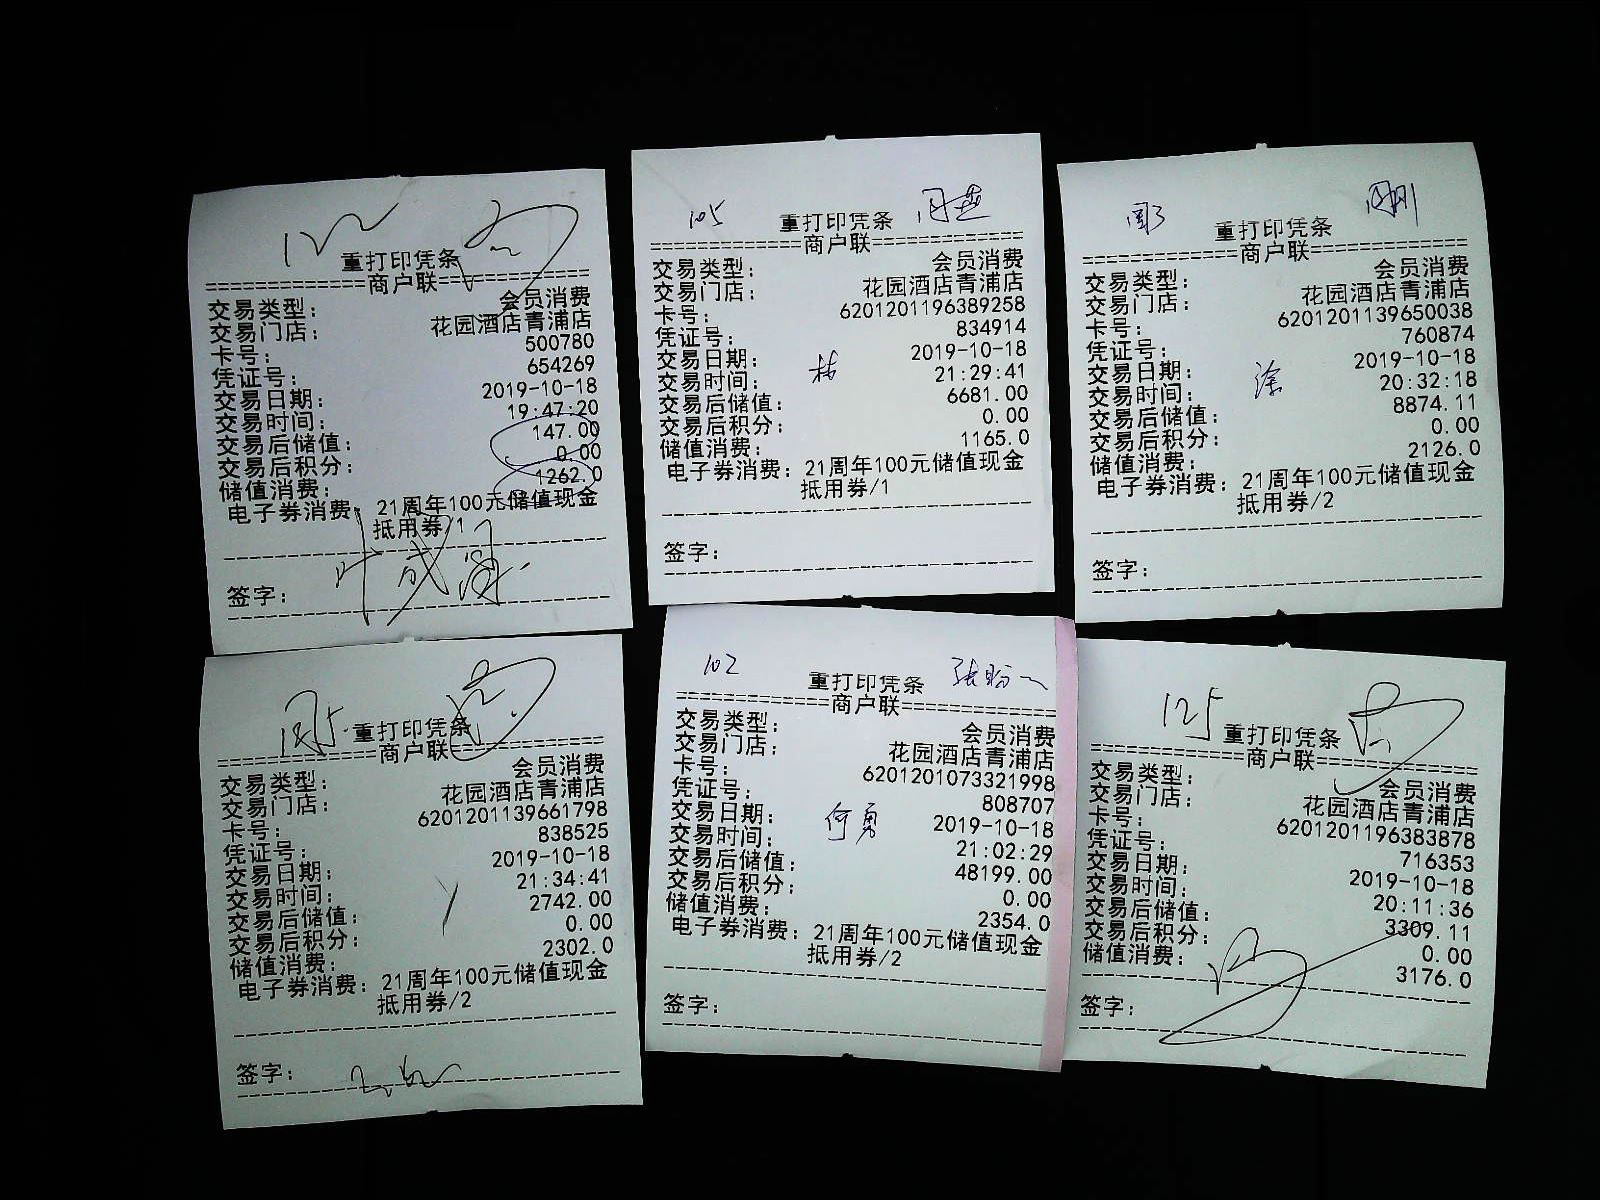 重打印凭条
============商户联============
交易类型： 会员消费
交易门店： 花园酒店青浦店
卡号： 500780
凭证号： 654269
交易日期： 2019-10-18
交易时间： 19:47:20
交易后储值： 147.00
交易后积分： 0.00
储值消费： 1262.0
电子券消费：21周年100元储值现金
抵用券/1
签字：
105 重打印凭条
============商户联============
交易类型： 会员消费
交易门店： 花园酒店青浦店
卡号： 6201201196389258
凭证号： 834914
交易日期： 2019-10-18
交易时间： 21:29:41
交易后储值： 6681.00
交易后积分： 0.00
储值消费： 1165.0
电子券消费：21周年100元储值现金
抵用券/1
签字：
重打印凭条
============商户联============
交易类型： 会员消费
交易门店： 花园酒店青浦店
卡号： 6201201139650038
凭证号： 760874
交易日期： 2019-10-18
交易时间： 涂 20:32:18
交易后储值： 8874.11
交易后积分： 0.00
储值消费： 2126.0
电子券消费：21周年100元储值现金
抵用券/2
签字：
重打印凭条
============商户联============
交易类型： 会员消费
交易门店： 花园酒店青浦店
卡号： 6201201139661798
凭证号： 838525
交易日期： 2019-10-18
交易时间： 21:34:41
交易后储值： 2742.00
交易后积分： 0.00
储值消费： 2302.0
电子券消费：21周年100元储值现金
抵用券/2
签字：
102 重打印凭条
============商户联============
交易类型： 会员消费
交易门店： 花园酒店青浦店
卡号： 6201201073321998
凭证号： 808707
交易日期： 何勇 2019-10-18
交易时间： 21:02:29
交易后储值： 48199.00
交易后积分： 0.00
储值消费： 2354.0
电子券消费：21周年100元储值现金
抵用券/2
签字：
125 重打印凭条
============商户联============
交易类型： 会员消费
交易门店： 花园酒店青浦店
卡号： 6201201196383878
凭证号： 716353
交易日期： 2019-10-18
交易时间： 20:11:36
交易后储值： 3309.11
交易后积分： 0.00
储值消费： 3176.0
签字：